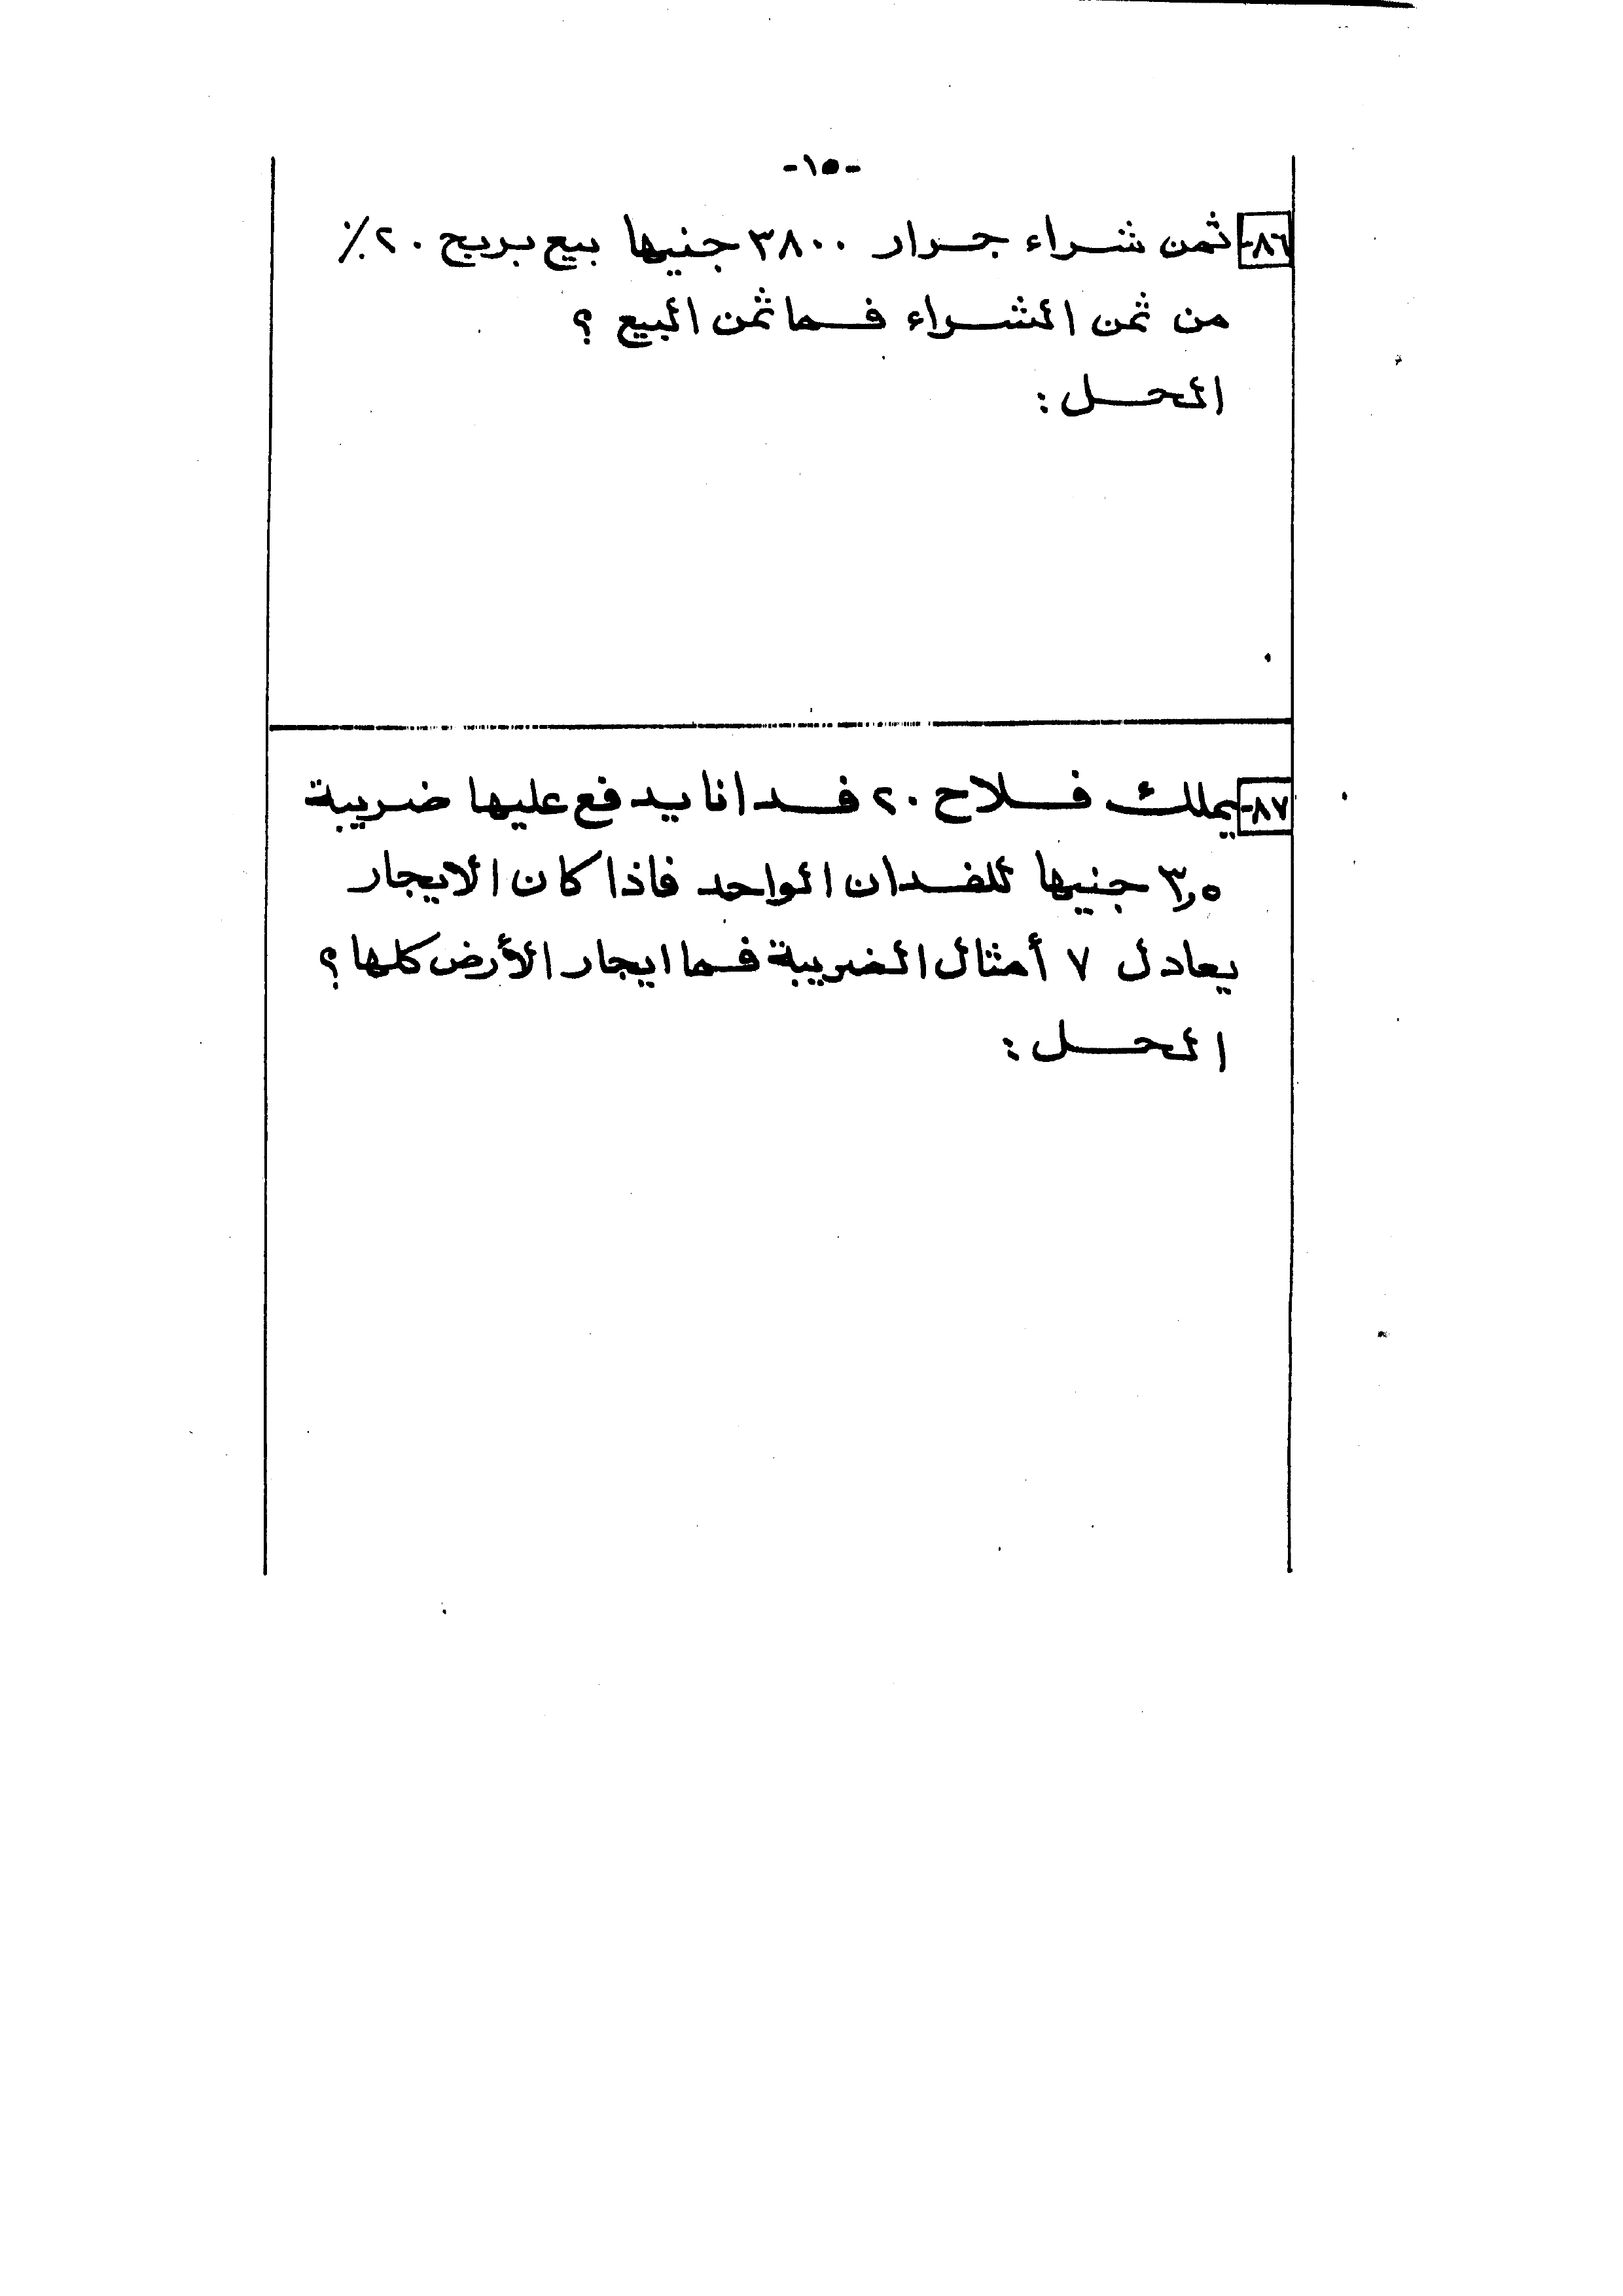 -١٥-
٨٦- ثمن شراء جرار ٣٨٠٠ جنيها بيع بربح ٢٠٪
من ثمن الشراء فما ثمن البيع ؟
الحل :
٨٧- يملك فلاح ٢٠ فدانا يدفع عليها ضريبة
٣,٥ جنيها للفدان الواحد فاذا كان الايجار
يعادل ٧ أمثال الضريبة فما ايجار الأرض كلها ؟
الحل :